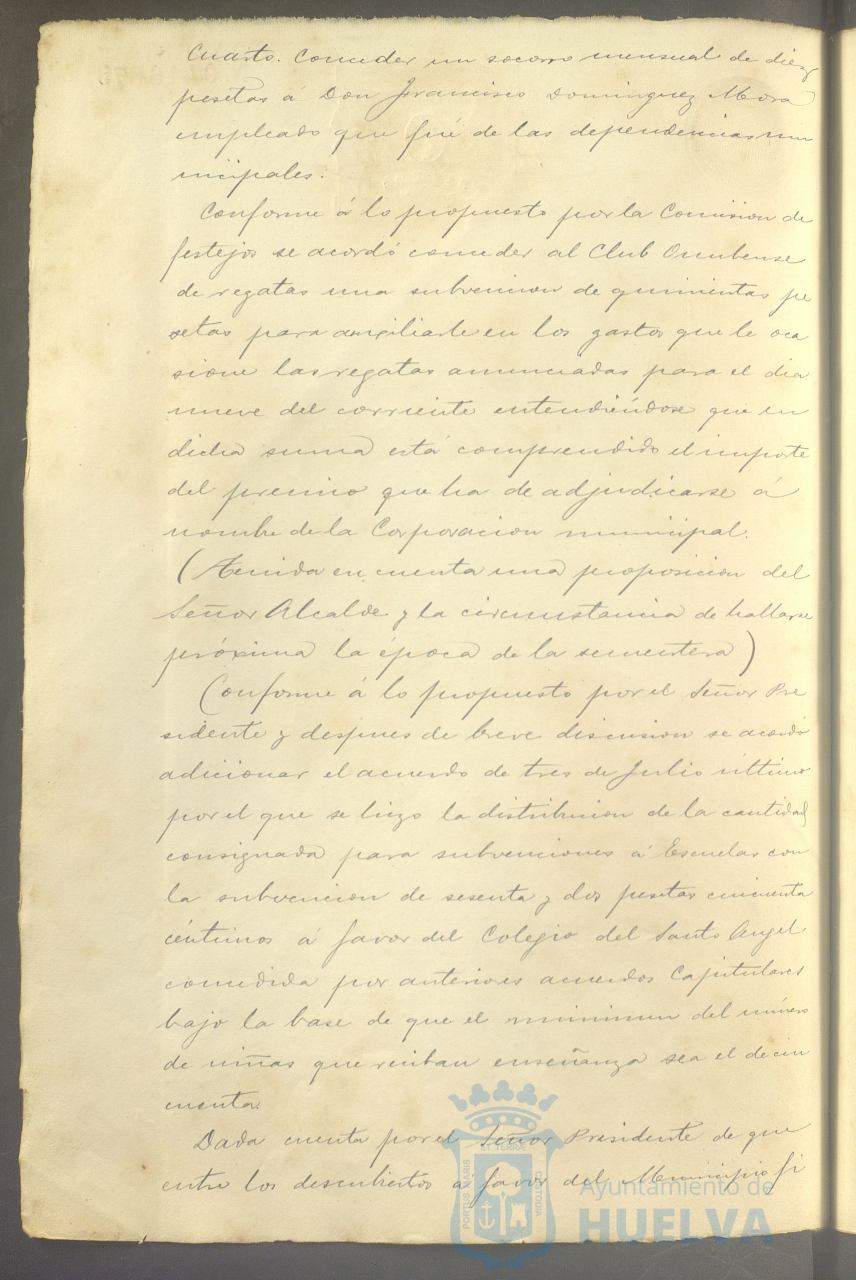 Cuarto. Conceder un socorro mensual de diez
pesetas á Don Francisco Dominguez Mora
empleado que fué de las dependencias mu
nicipales.
Conforme á lo propuesto por la Comision de
festejos se acordó conceder al Club Onubense
de regatas una subvencion de quinientas pe
setas para auxiliarle en los gastos que le oca
sione las regatas anunciadas para el dia
nueve del corriente entendiéndose que en
dicha suma está comprendido el importe
del premio que ha de adjudicarse á
nombre de la Corporacion municipal.
(Tenida en cuenta una proposicion del
Señor Alcalde y la circunstancia de hallarse
próxima la época de la sementera)
Conforme á lo propuesto por el Señor Pre
sidente y despues de breve discusion se acordó
adicionar el acuerdo de tres de Julio último
por el que se hizo la distribucion de la cantidad
consignada para subvenciones á Escuelas con
la subvencion de sesenta y dos pesetas cincuenta
céntimos á favor del Colegio del Santo Angel
concedida por anteriores acuerdos Capitulares
bajo la base de que el minimun del número
de niñas que reciban enseñanza sea el de cin
cuenta.
Dada cuenta por el Señor Presidente de que
entre los descubiertos a favor del Municipio fi
PORTUS MARIS
ET TERRAE
CUSTODIA
Ayuntamiento de
HUELVA